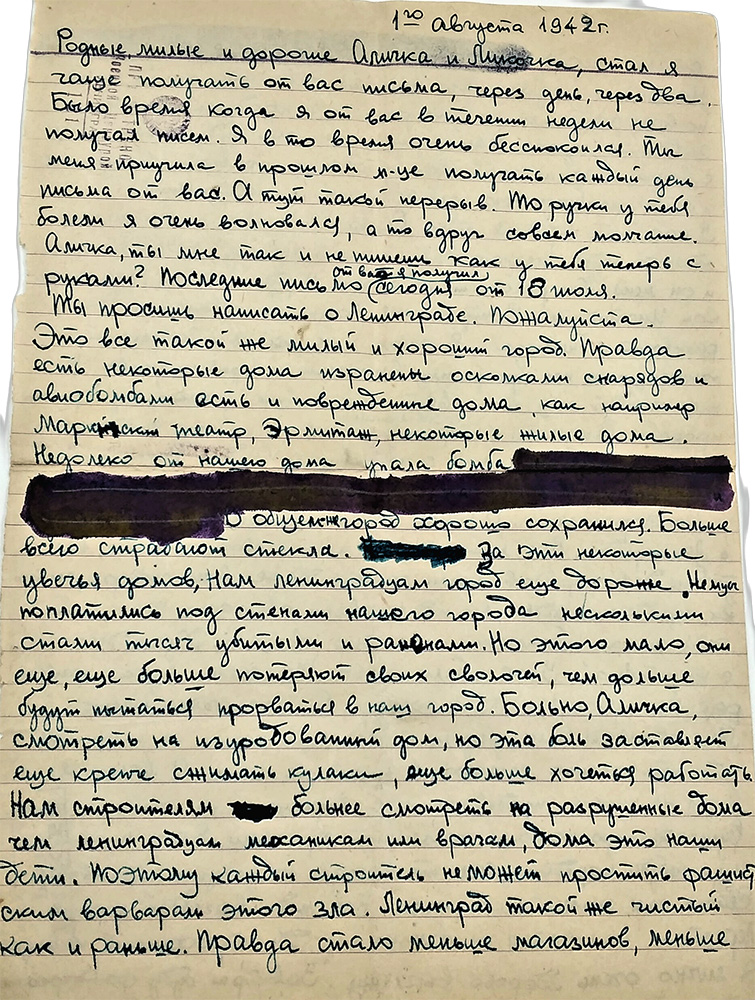 1го августа 1942г.
Родные, милые и дорогие Аличка и Лилочка, стал я
чаще получать от вас письма, через день, через два.
Было время когда я от вас в течении недели не
получал писем. Я в то время очень бесспокоился. Ты
меня приучила в прошлом м-це получать каждый день
письма от вас. А тут такой перерыв. То ручки у тебя
болели я очень волновался, а то вдруг совсем молчание.
Аличка, ты мне так и не пишешь как у тебя теперь с
руками? Последние письмо (от вас я получил) сегодня от 18 июля.
Ты просишь написать о Ленинграде. Пожалуйста.
Это все такой же милый и хороший город. Правда
есть некоторые дома изранены осколками снарядов и
авиобомбами есть и поврежденные дома, как например
Мариинский театр, Эрмитаж, некоторые жилые дома.
Недолеко от нашего дома упала бомба
В общем город хорошо сохранился. Больше
всего страдают стекла. За эти некоторые
увечья домов, Нам ленинградцам город еще дороже. Немцы
поплатились под стенами нашего города несколькими
стами тысяч убитыми и ранеными. Но этого мало, они
еще, еще больше потеряют своих сволочей, чем дольше
будут пытаться прорваться в наш город. Больно, Аличка,
смотреть на изуродованный дом, но эта боль заставляет
еще крепче сжимать кулаки, еще больше хочеться работать.
Нам строителям больнее смотреть на разрушенные дома
чем ленинградцам механикам или врачам, дома это наши
дети. Поэтому каждый строитель не может простить фашист
ским варварам этого зла. Ленинград такой же чистый
как и раньше. Правда стало меньше магазинов, меньше